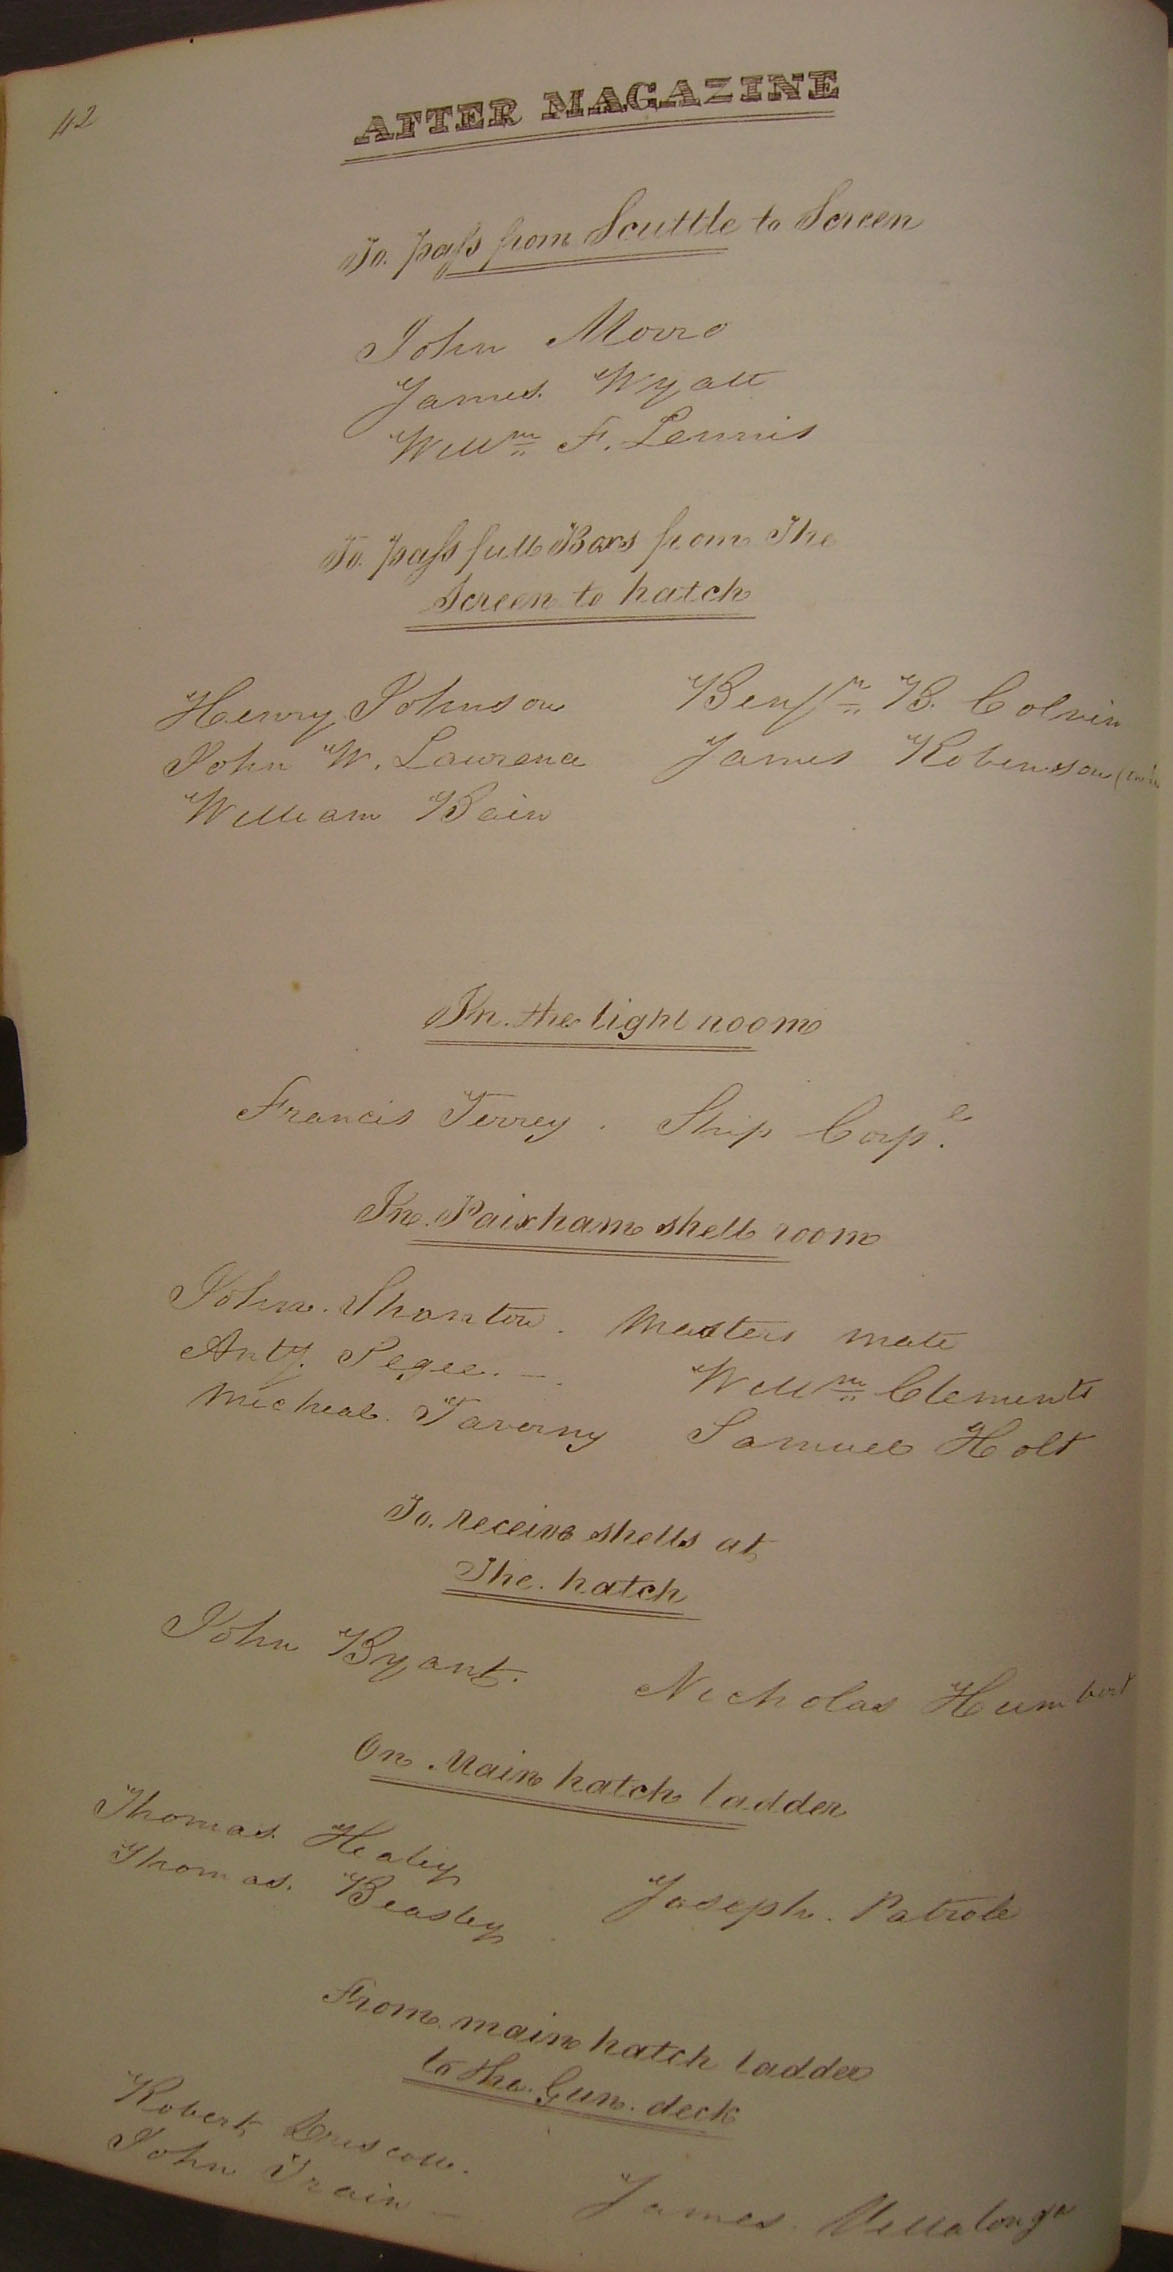 42
AFTER MAGAZINE
To. pass from Scuttle to Screen
John Morro
James. Wyatt
Willm F. Lennis
To. pass full Boxs from The
Screen to hatch
Henry Johnson Benjn B. Colvin
John W. Laurence James Robinson
William Bain
In. the light room
Francis Terrey. Ship Corpl.
In. Paixham shell room
John. Shanton. Masters mate
Anty. Pegee. Willm Clements
Micheal. Taverny Samuel Holt
To. receive shells at
The. hatch
John Byant. Nicholas Humbert
On. Main hatch ladder
Thomas. Healey
Thomas. Beasley Joseph. Patrole
From main hatch ladder
to the. Gun. deck
Robert Driscoll.
John Train James. Vellalonga